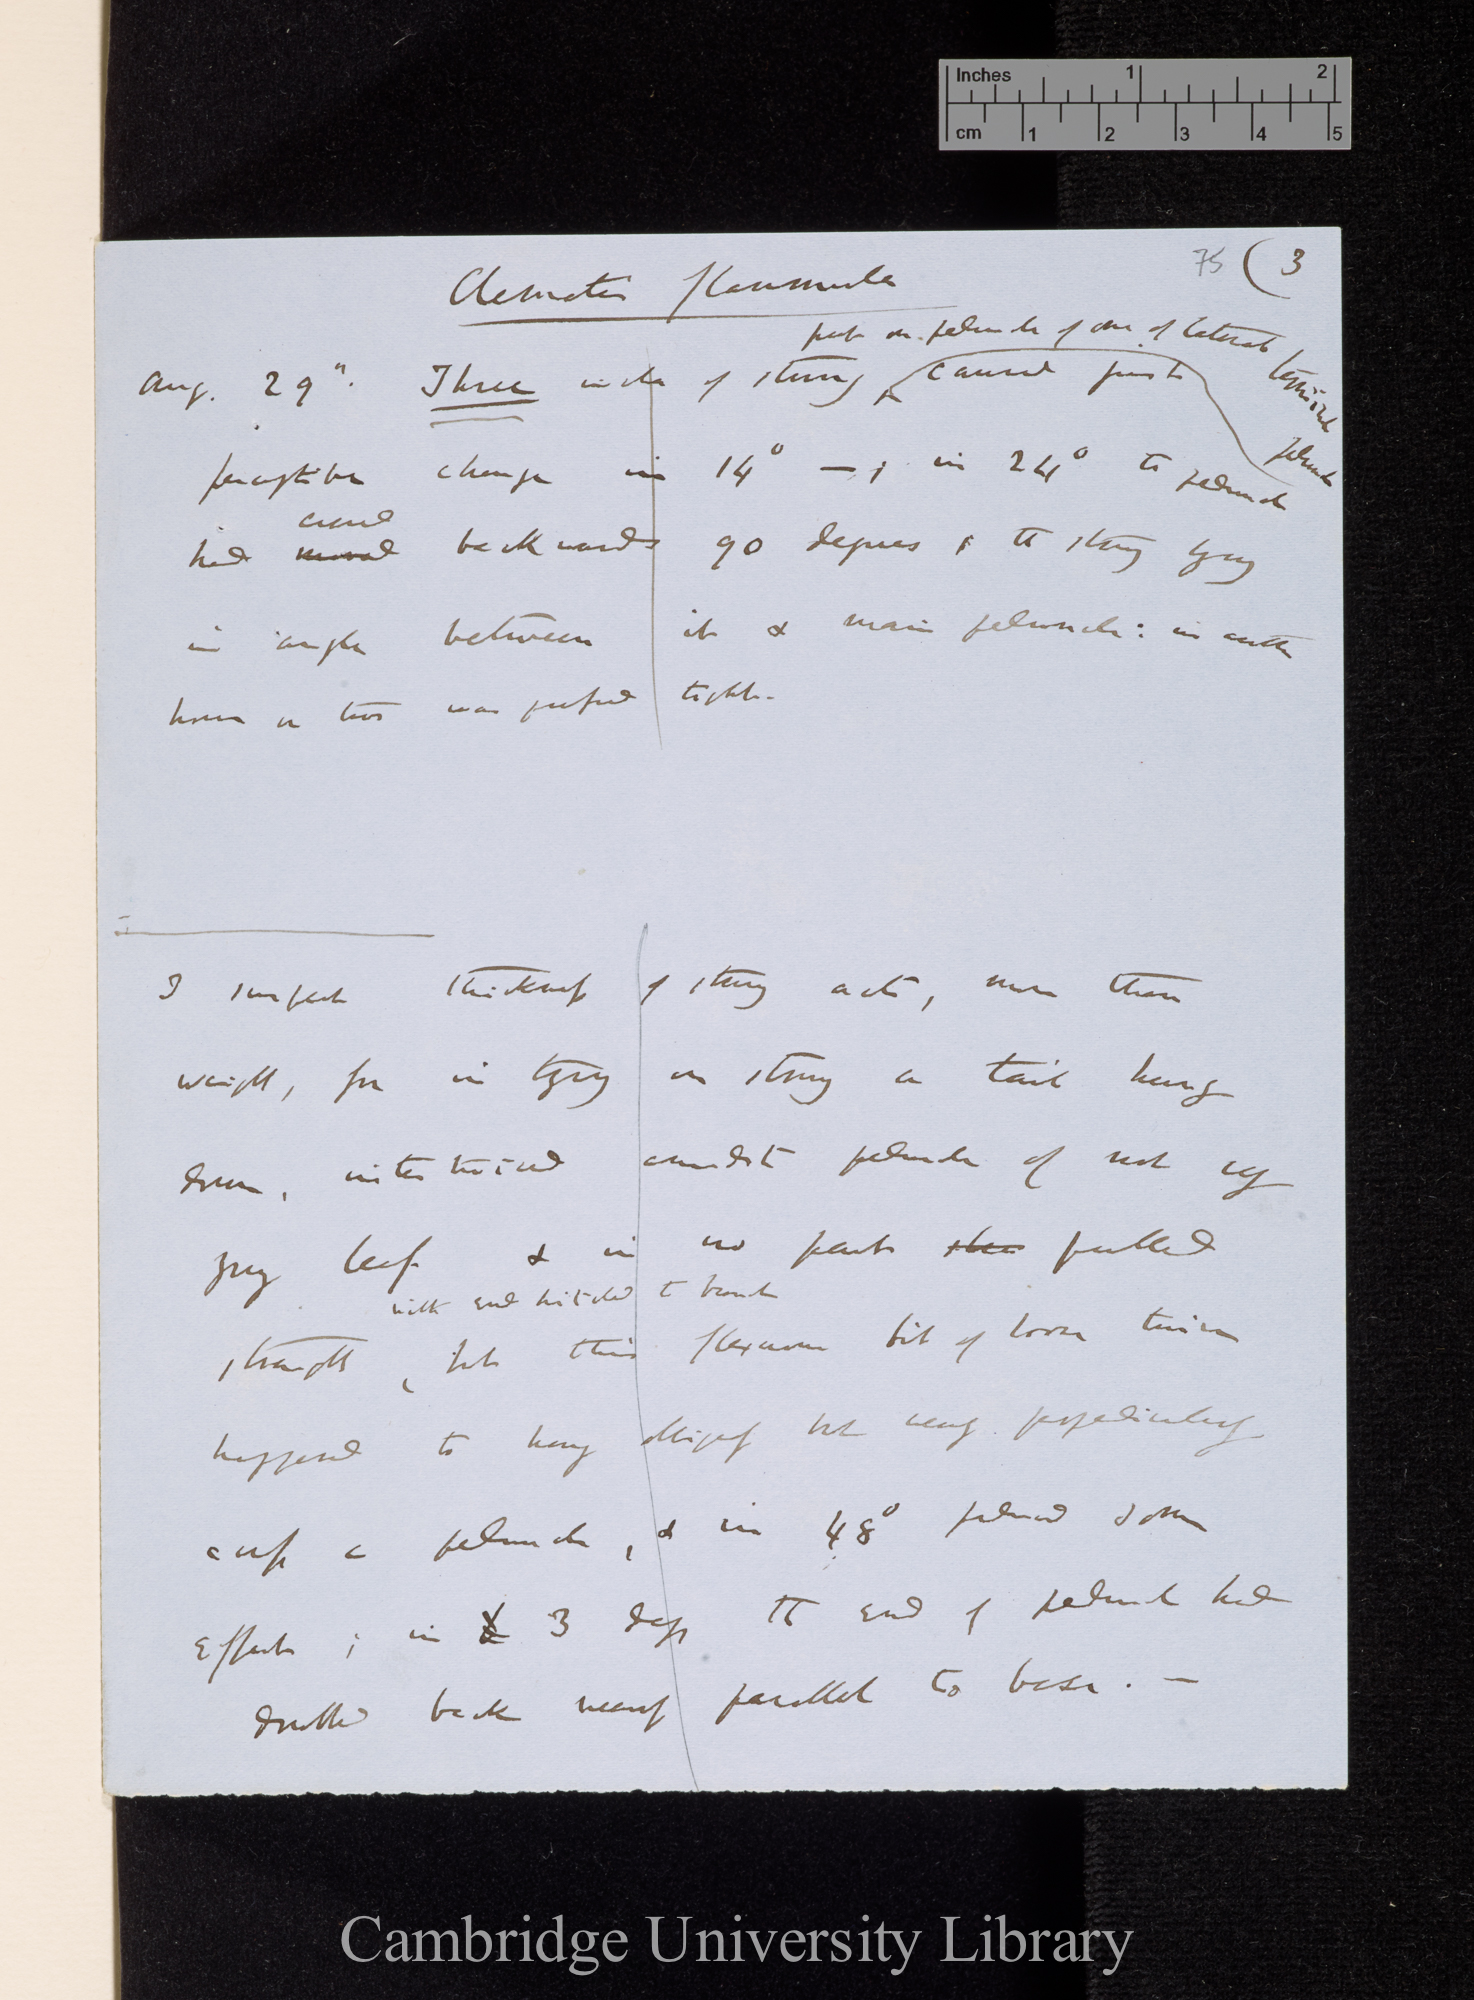 Inches 1 2
cm 1 2 3 4 5
75 (3
Clematis flammula
put on peduncle of one of lateral terminal peduncle
Aug. 29th. Three inches of string caused just
perceptible change in 14° —; in 24° the peduncle
had moved curved backwards 90 degrees & the string lying
in angle between it & main peduncle: in another
hour or two was passed tight.
I suspect thickness of string acts, more than
weight, for in tying on string a tail hung
down, intertwined amidst peduncles of not very
young leaf & in no part pulled
with end hitched to branch
straight, but this flexuous bit of loose twine
happened to hang obliquely but nearly perpendicularly
across a peduncle, & in 48° produced some
effect; in 3 days the end of peduncle had
doubled back nearly parallel to base. —
Cambridge University Library